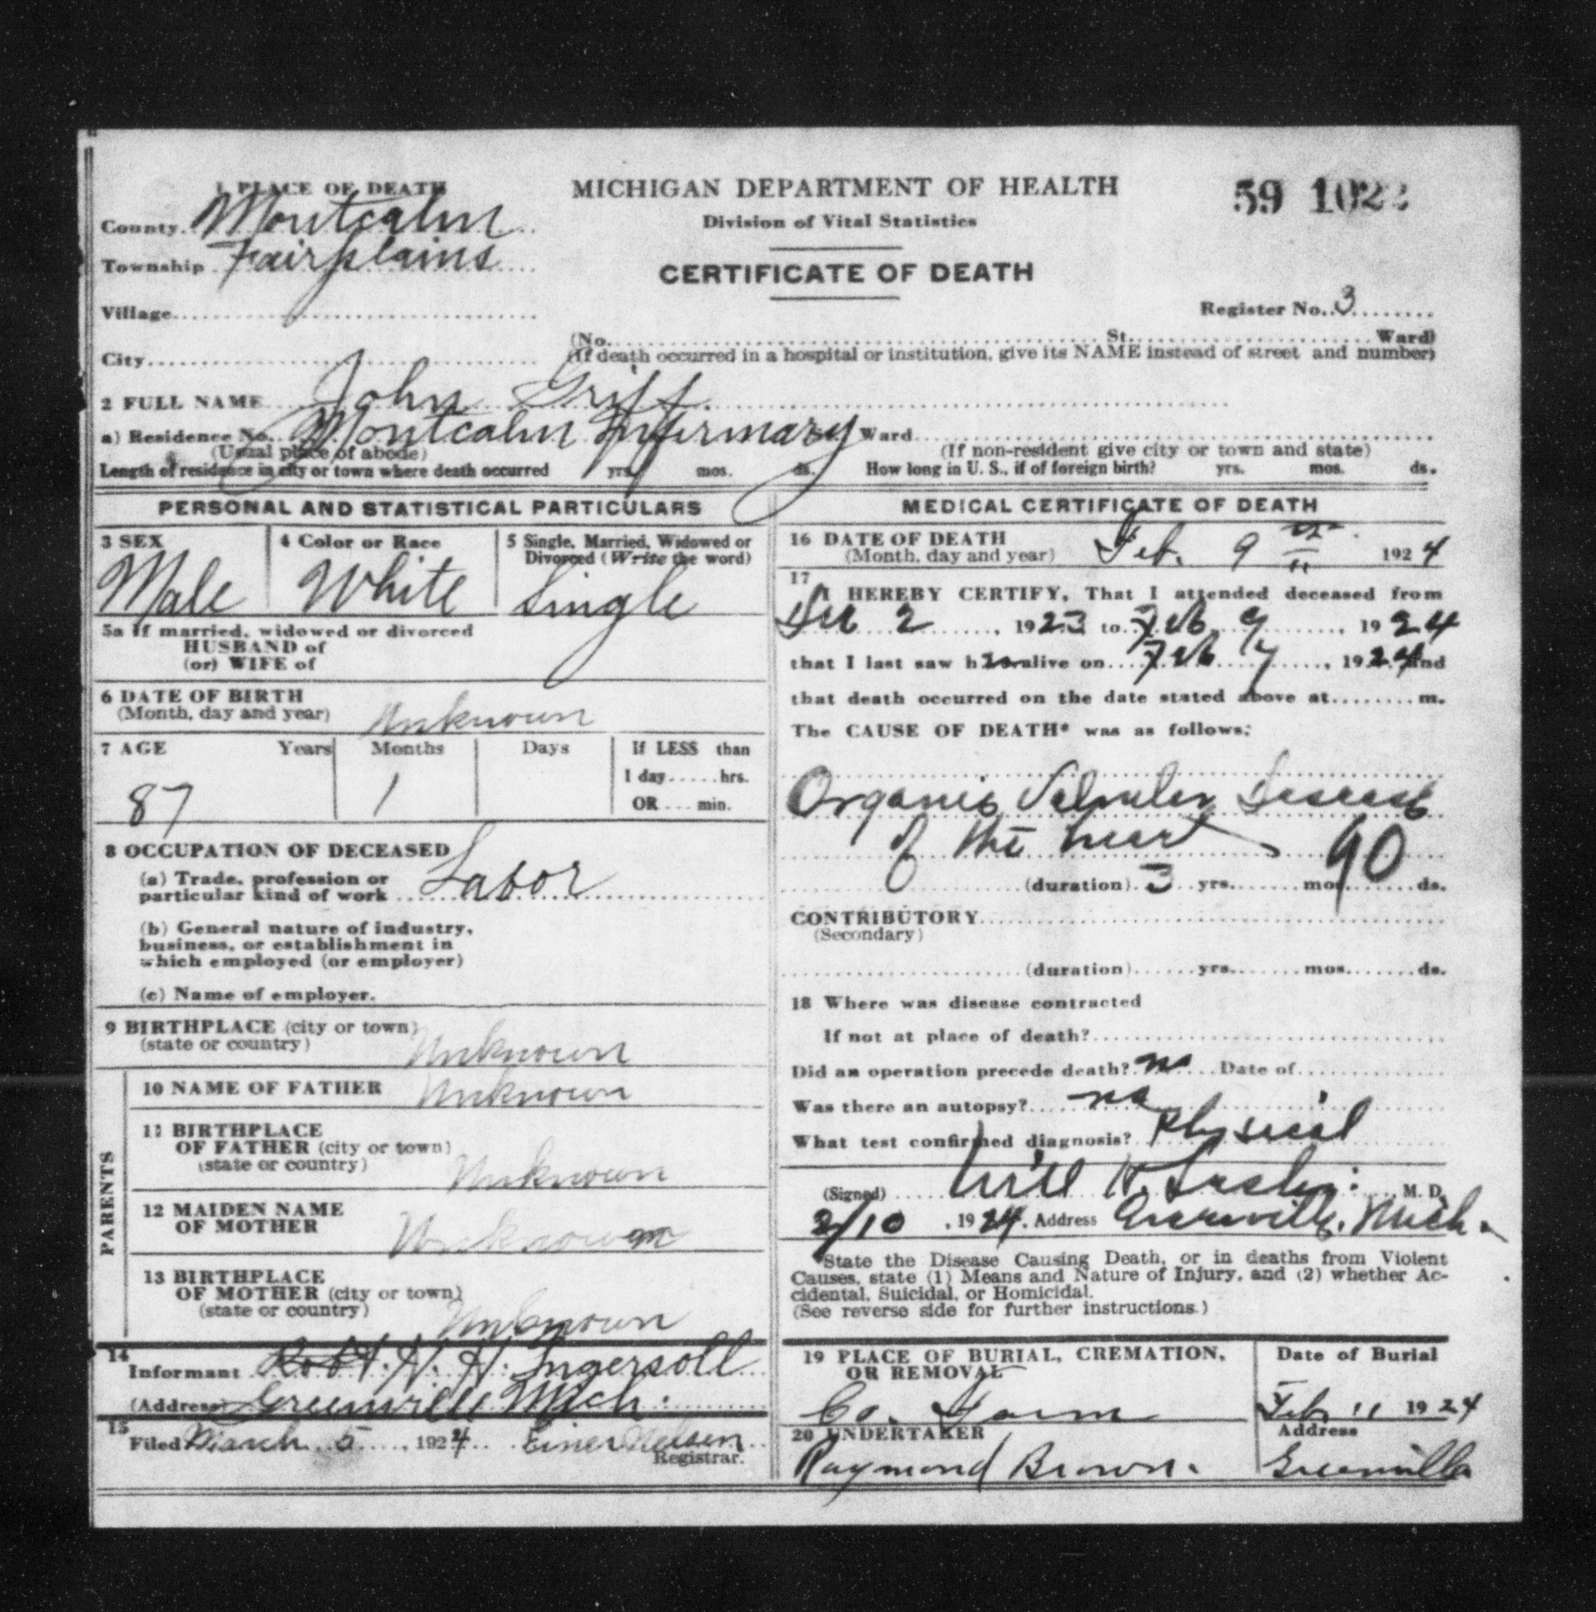 1 PLACE OF DEATH
MICHIGAN DEPARTMENT OF HEALTH
59 1022
County Montcalm
Division of Vital Statistics
Township Fairplains
CERTIFICATE OF DEATH
Village
Register No. 3
City
(No. St. Ward)
(If death occurred in a hospital or institution, give its NAME instead of street and number)
2 FULL NAME John Griff.
a) Residence No. Montcalm Infirmary Ward
(Usual place of abode)
(If non-resident give city or town and state)
Length of residence in city or town where death occurred yrs. mos. ds. How long in U. S., if of foreign birth? yrs. mos. ds.
PERSONAL AND STATISTICAL PARTICULARS
3 SEX
4 Color or Race
5 Single, Married, Widowed or
Divorced (Write the word)
Male White Single
5a If married, widowed or divorced
HUSBAND of
(or) WIFE of
6 DATE OF BIRTH
(Month, day and year) Unknown
7 AGE Years Months Days If LESS than
1 day hrs.
OR min.
87 1
8 OCCUPATION OF DECEASED
(a) Trade, profession or
particular kind of work Labor
(b) General nature of industry,
business, or establishment in
which employed (or employer)
(c) Name of employer.
9 BIRTHPLACE (city or town)
(state or country) Unknown
PARENTS
10 NAME OF FATHER Unknown
11 BIRTHPLACE
OF FATHER (city or town)
(state or country) Unknown
12 MAIDEN NAME
OF MOTHER Unknown
13 BIRTHPLACE
OF MOTHER (city or town)
(state or country) Unknown
14
Informant Robt. H. H. Ingersoll
(Address) Greenville Mich.
15
Filed March 5, 1924 Einer Nelsen
Registrar.
MEDICAL CERTIFICATE OF DEATH
16 DATE OF DEATH
(Month, day and year) Feb. 9 1924
17
I HEREBY CERTIFY, That I attended deceased from
Dec 2, 1923 to Feb 9, 1924
that I last saw him alive on Feb 7, 1924 and
that death occurred on the date stated above at m.
The CAUSE OF DEATH* was as follows:
Organic Valvular Disease
of the heart 90
(duration) 3 yrs. mos. ds.
CONTRIBUTORY
(Secondary)
(duration) yrs. mos. ds.
18 Where was disease contracted
If not at place of death?
Did an operation precede death? no Date of
Was there an autopsy? no
What test confirmed diagnosis? Physical
(Signed) Will H. M. D.
2/10, 1924. Address Greenville, Mich.
*State the Disease Causing Death, or in deaths from Violent
Causes, state (1) Means and Nature of Injury, and (2) whether Ac-
cidental, Suicidal, or Homicidal.
(See reverse side for further instructions.)
19 PLACE OF BURIAL, CREMATION,
OR REMOVAL
Date of Burial
Co. Farm Feb 11 1924
20 UNDERTAKER
Address
Raymond Brown. Greenville